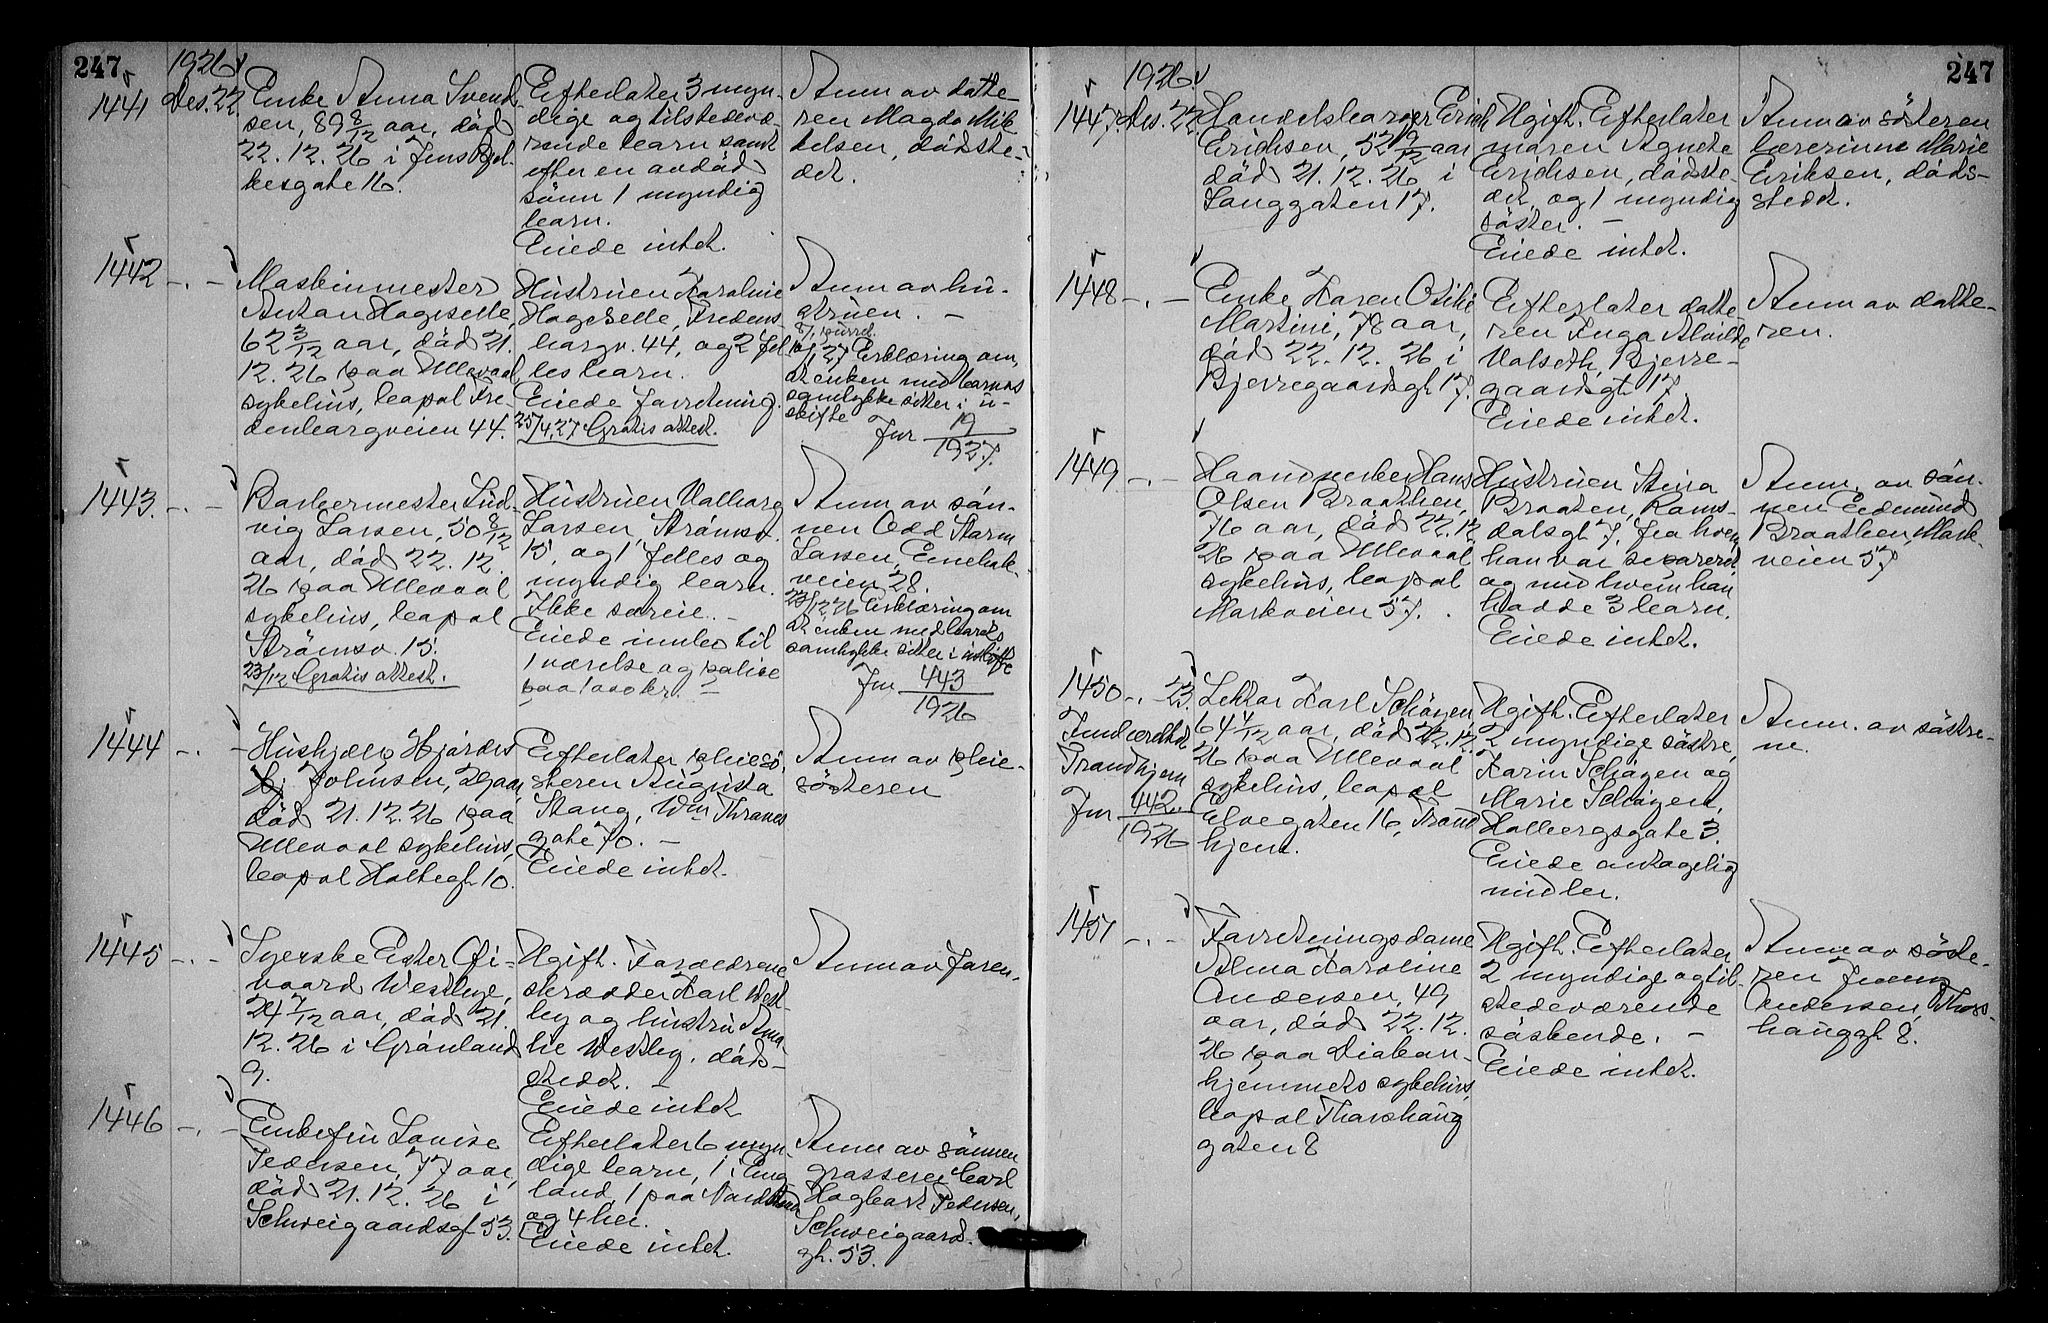 247
1926
1441
Des. 22
Enke Anna Svend-
sen, 89 8/12 aar, död
22.12.26 i Jens Bjel-
kesgate 16.
Efterlater 3 myn-
dige og tilstedevæ-
rende barn samt
efter en avdöd
sönn 1 myndig
barn.
Eiede intet.
Anm av datte-
ren Magda Mik-
kelsen, dödste-
det.
1442 -.-
Maskinmester
Anton Hageselle,
62 3/12 aar, död 21.
12.26 paa Ullevaal
sykehus, bopal Fre-
densborgveien 44.
Hustruen Karoline
Hageselle, Fredens-
borgv. 44, og 2 fel-
les barn.
Eiede forretning.
25/4 27 Gratis attest.
Anm av hu-
struen. -
27 Erklæring om,
at enken med barnas
samtykke sitter i u-
skifte
Jnr 19
1927.
1443. -.-
Barbermester Lud-
vig Larsen, 50 8/12
aar, död 22.12.
26 paa Ullevaal
sykehus, bopal
Strömsv. 15.
23/12 Gratis attest.
Hustruen Valborg
Larsen, Strömsv.
15, og 1 felles og
myndig barn.
Ikke særeie. -
Eiede innbo til
1 værelse og polise
paa 1000 kr. -
Anm av sön-
nen Odd Storm
Larsen, Enebak-
veien 28.
23/12 26 Erklæring om
at enken med barets
samtykke sitter i uskifte
Jnr 443
1926
1444 -.-
Hushjelp Hjördis
Johnsen, 29 aar,
död 21.12.26 paa
Ullevaal sykehus,
bopal Holtegt 10.
Efterlater pleiesö-
steren Augusta
Stang, Wm Thranes
gate 70. -
Eiede intet.
Anm av pleie-
sösteren
1445 -.-
Syerske Ester Ei-
vaard Westbye,
24 7/12 aar, död 21.
12.26 i Grönland
9.
Ugift. Foreldrene
skredder Karl West-
by og hustru Ama-
lie Westby, död-
stedet. -
Eiede intet
Anm av faren-
1446 -.-
Enkefru Lovise
Pedersen, 77 aar,
död 21.12.26 i
Schweigaardsgt 53.
Efterlater 6 myn-
dige barn, 1 i Eng-
land, 1 paa Nordstrand
og 4 her.
Eiede intet.
Anm av sönnen
grosserer Carl
Hagbart Pedersen,
Schweigaards-
gt. 53.
247
1926
1447. Des. 22.
Handelsborger Erich
Erichsen, 52 9/12 aar
död 21.12.26 i
Langgaten 17.
Ugift. Efterlater
moren Agnete
Erichsen, dödste-
det, og 1 myndig
söster. -
Eiede intet.
Anm av sösteren
lærerinne Marie
Eriksen, döds-
stedet.
1448 -.-
Enke Karen Otilie
Martini, 78 aar,
död 22.12.26 i
Bjerregaardsgt 17.
Efterlater datte-
ren Inga Alvilde
Valseth, Bjerre-
gaardsgt 17.
Eiede intet.
Anm av datte-
ren.
1449 -.-
Haandverker Hans
Olsen Braathen,
76 aar, död 22.12.
26 paa Ullevaal
sykehus, bopal
Markveien 57.
Hustruen Stina
Braaten, Roms-
dalsgt 7, fra hvem
han var separert
og med hvem han
hadde 3 barn.
Eiede intet.
Anm. av sön-
nen Edmund
Braathen, Mark-
veien 57
1450 -.- 23.
Innberettet
Trondhjem
Jnr 442
1926
Lektor Karl Schögen,
64 4/12 aar, död 22.12.
26 paa Ullevaal
sykehus, bopal
Elvegaten 16, Trond
hjem.
Ugift. Efterlater
2 myndige söstre,
Karin Schögen og
Marie Schögen,
Holbergsgate 3.
Eiede antagelig
midler.
Anm. av söstre-
ne.
1451 -.-
Forretningsdame
Alma Karoline
Andersen, 49
aar, död 22.12.
26 paa Diakon-
hjemmets sykehus,
bopal Thorshaug
gaten 8
Ugift. Efterlater
2 myndige og til-
stedeværende
söskende. -
Eiede intet.
Anm av söste-
ren Jenny
Andersen, Thors-
hauggt 8.